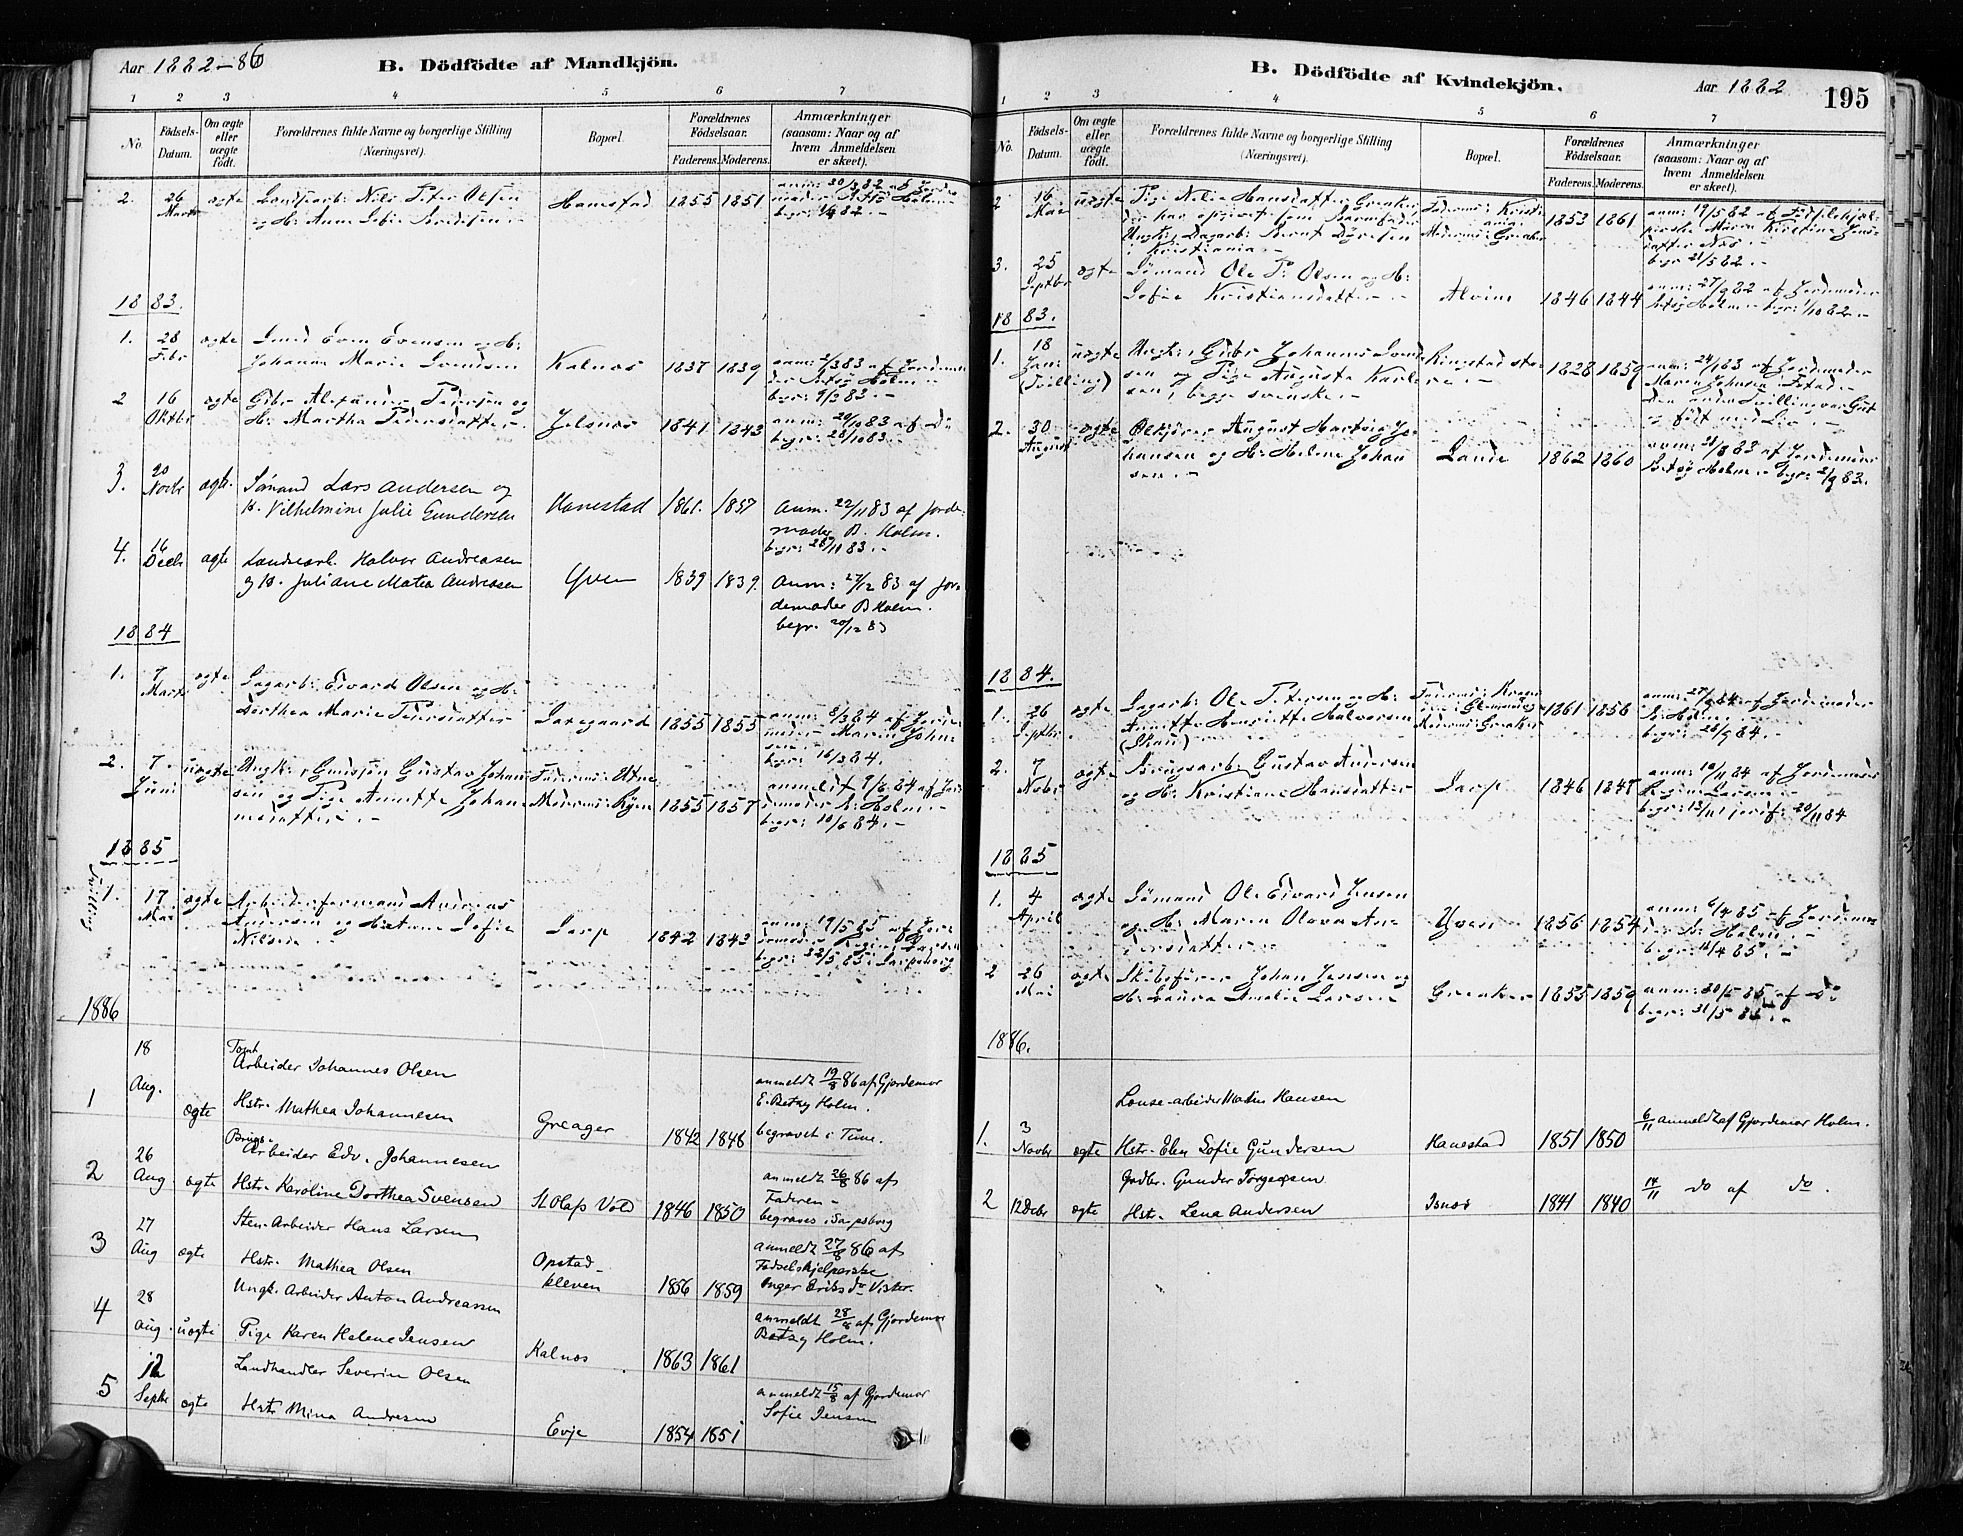 Aar 1882-86
B. Dödfödte af Mandkjön.
1 2 3 4 5 6 7
No.
Födsels-
Datum.
Om ægte
eller
uægte
födt.
Forældrenes fulde Navne og borgerlige Stilling
(Næringsvei).
Bopæl.
Forældrenes
Födselsaar.
Faderens. Moderens.
Anmærkninger
(saasom: Naar og af
hvem Anmeldelsen
er skeet).
2. 26 Marts ægte
Nils Peter Olsen
Hanestad 1855 1851
anm: 30/3 82 af Jorde-
moder Betsy Holm
1883.
1. 28 Febr ægte
Smed Even Evensen og H:
Johanne Marie Svendsen
Kalnæs 1837 1839
anm: 2/3 83 af Jordemo-
der Betsy Holm
begr: 9/3 83.
2 16 Oktbr ægte
Gbr. Alexander Pedersen og
H: Martha Pedersdatter
Jelsnæs 1841 1843
anm: 20/10 83 af do
begr: 28/10 83.
3. 20 Novbr ægte.
Sömand Lars Andersen og
H. Vilhelmine Julie Gundersen
Hanestad 1861. 1857
Anm. 22/11 83 af Jorde-
moder B. Holm.
begr: 28/11 83.
4. 16 Decbr ægte
Landarb. Halvor Andreasen
og H. Juliane Matea Andreasen
Yven 1839 1839.
Anm: 27/12 83 af Jor-
demoder B Holm.
begr. 20/12 83
1884
1. 7 Marts ægte
Sagarb: Edvard Olsen og H:
Dorthea Marie Pedersdatter
1855 1855
anm: 8/3 84 af Jorde-
moder Maren John-
sen.
begr: 16/3 84.
2. 7. Juni uægte
Ungk: Gustav Johan
sen og Pige Annette Johan
nesdatter.
Faderens: Utne
Moderens: Ryen
1855 1857
anmeldt 9/6 84 af Jor
demoder B. Holm
begr: 10/6 84.
1885
Tvilling
1. 17 Mai ægte
Arbeiderformand Andreas
Andersen og Hustru Sofie
Nilsen
Sarp 1842 1843
anm: 19/5 85 af Jor-
demoder Regine Larsen
begr: 22/5 85 i Sarpsborg
1886
1 18 Aug. ægte
Tomt
Arbeider Johannes Olsen
Hstr. Mathea Johannesen
Greager 1842 1848
anmeldt 19/8 86 af Gjordemor
E. Betsy Holm.
begravet i Tune.
2 26 Aug. ægte
Brugs-
Arbeider Edv. Johannesen
Hstr. Karoline Dorthea Svensen
St Olafs Vold 1846 1850
anmeldt 26/8 86 af
Faderen -
begraves i Sarpsborg
3 27 Aug ægte
Sten-Arbeider Hans Larsen
Hstr. Mathea Olsen
Opstad-
kleven 1856 1859
anmeldt 27/8 86 af
Födselshjelperske
Inger Eriksd. Vister.
4 28 Aug. uægte
Ungk. Arbeider Anton Andreassen
Pige Karen Helene Jensen
Kalnæs 1863 1861
anmeldt 28/8 af Gjordemor
Betsy Holm.
5 12 Septbr ægte
Landhandler Severin Olsen
Hstr Mina Andresen
Evje 1854 1851
anmeldt 15/8 af Gjordemor
Sofie Jensen
B. Dödfödte af Kvindekjön.
Aar 1882
195
1 2 3 4 5 6 7
No.
Födsels-
Datum.
Om ægte
eller
uægte
födt.
Forældrenes fulde Navne og borgerlige Stilling
(Næringsvei).
Bopæl.
Forældrenes
Födselsaar.
Faderens. Moderens.
Anmærkninger
(saasom: Naar og af
hvem Anmeldelsen
er skeet).
2 16 Mai uægte
Pige Nelie Hansdatter Greaker
der har opgivet som Barnefader
Ungk: Dagarb: Bernt Dyresen
i Kristiania
Faderens: Kristi-
ania
Moderens: Greaker
1853 1861
anm: 19/5 82 af Födselshjæl-
perske Maren Kirstine Jens-
datter Næs.
begr 21/5 82.
3. 25 Septbr ægte
Sömand Ole P. Olsen og H:
Sofie Kristiansdatter
Alvim 1846 1844
anm: 27/9 82 af Jordemoder
Betsy Holm begr: 1/10 82.
1883.
1. 18 Jan: (Tvilling) uægte
Ungk: Gbr Johannes Svend
sen og Pige Auguste Karl
sen, begge svenske.
Ringstad store
1828 1859
anm: 24/1 83 af Jordemoder
Maren Johnsen
den anden Tvilling var Gut
og födt med Liv.
2. 30 August ægte
Ölkjörer August Hartvig Jo-
hansen og H: Helene Johan
sen.
Lande 1862 1860
anm: 31/8 83 af Jordemoder
Betsy Holm begr: 2/9 83.
1884.
1. 26 Septbr ægte
Sagarb: Ole Petersen og H:
Annette Henriette Halvorsen
Moderens: Greaker
1861 1856
anm: 27/9 84 af Jordemoder
B. Holm
begr: 28/9 84.
2. 7 Nobr ægte
Brugsarb: Gustav Andersen
og H: Kristiane Hansdatter
Sarp 1846 1848
anm: 10/11 84 af Jordemoder
Regine Larsen
begr: 13/11 jordf: 20/11 84
1885
1. 4 April ægte
Sömand Ole Edvard Jensen
og H: Maren Olava An-
dersdatter
Yven 1856 1854
anm: 6/4 85 af Jordemo-
der B. Holm
begr: 12/4 85.
2 26 Mai ægte
Skibsförer Johan Jensen og
H: Laura Amalie Larsen
Greaker 1855 1859
anm: 30/5 85 af do
begr: 31/5 85.
1886.
1. 3 Novbr ægte
Lense-arbeider Martin Hansen
Hstr. Elen Sofie Gundersen
Hanestad 1851 1850
6/11 anmeldt af Gjordemor Holm.
2 12 Decbr ægte
Gdbr. Gunder Torgersen
Hstr. Lena Andersen
Isnes 1841 1840
14/11 do af do.